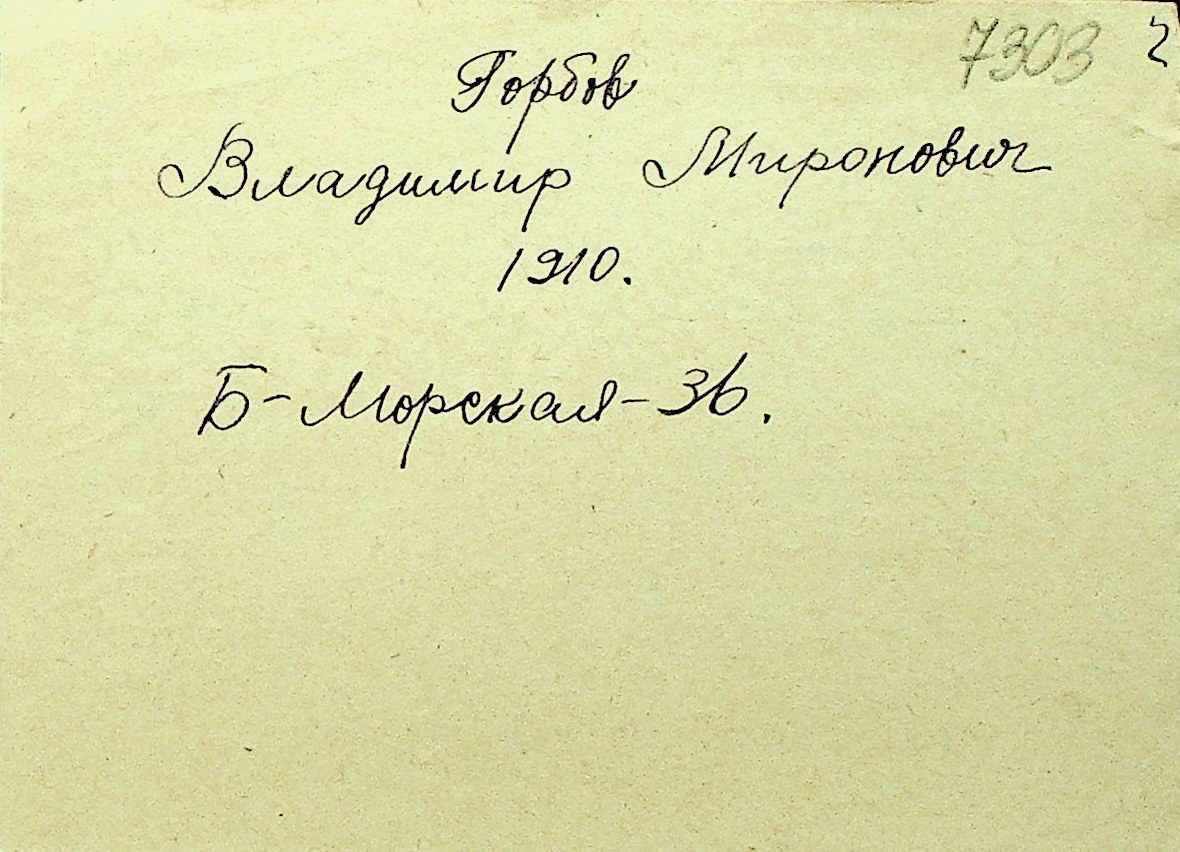 7303 2
Горбов
Владимир Миронович
1910.
Б-Морская-36.